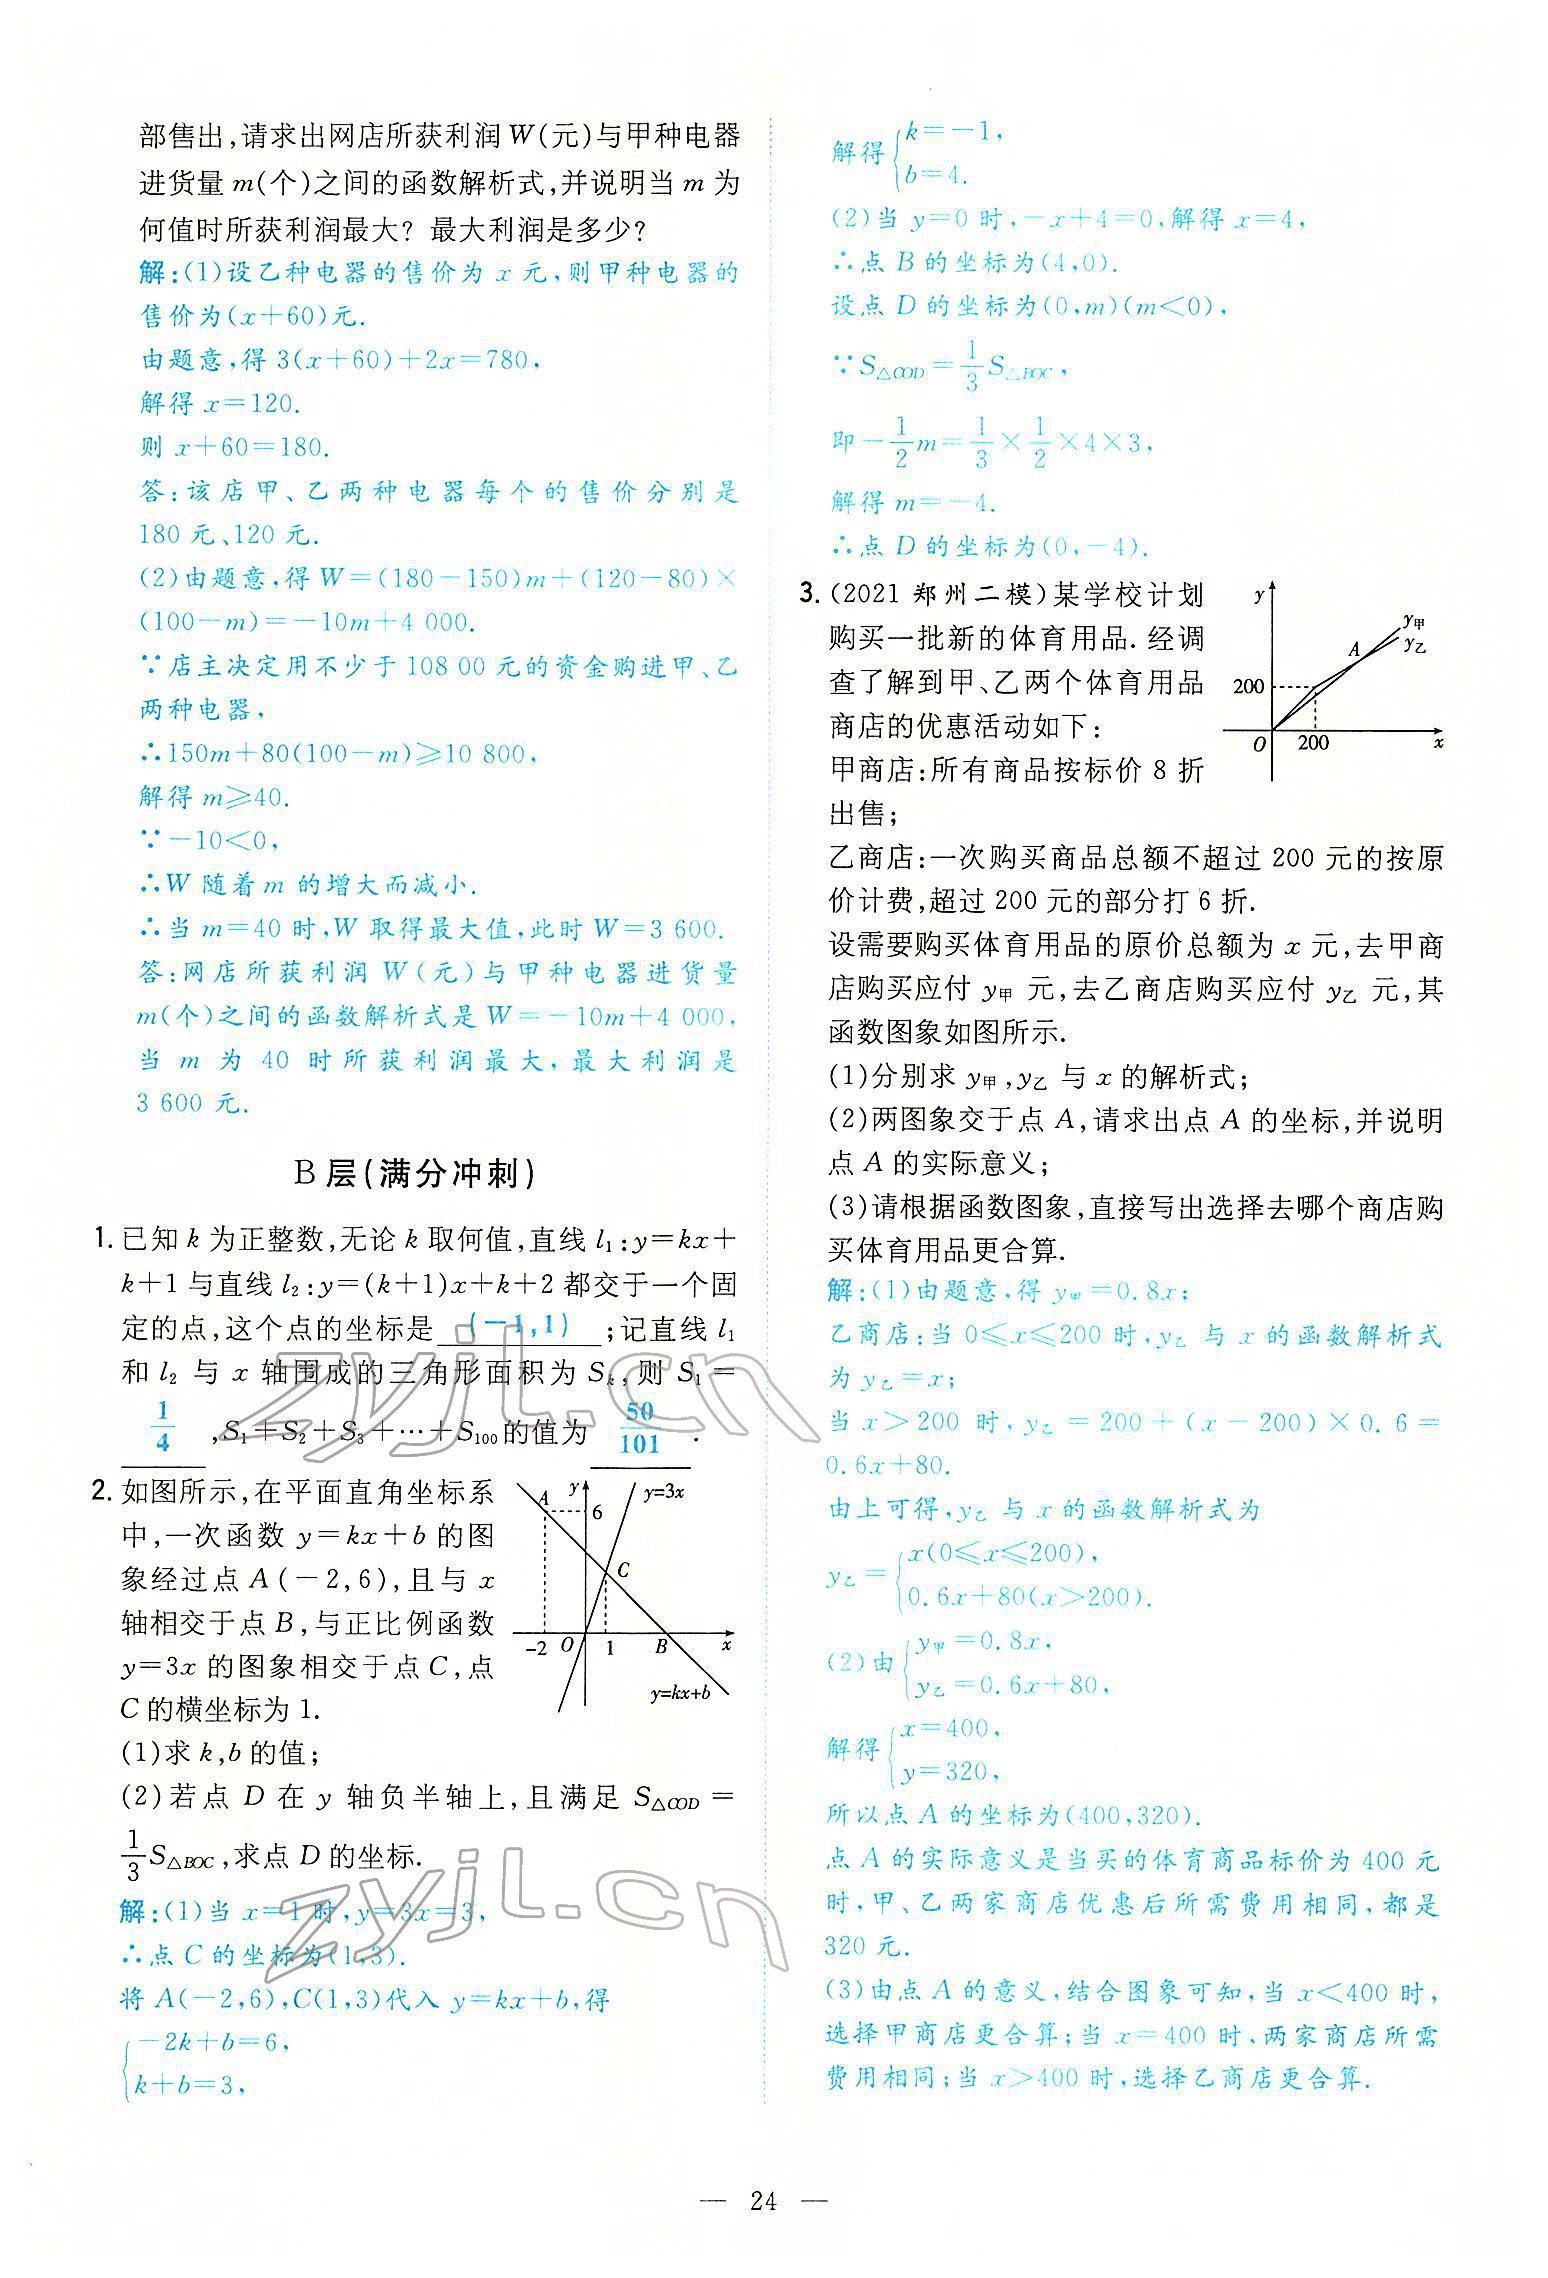 部售出,请求出网店所获利润W(元)与甲种电器
进货量 m(个)之间的函数解析式,并说明当 m 为
何值时所获利润最大? 最大利润是多少?
解:(1)设乙种电器的售价为 x 元,则甲种电器的
售价为(x+60)元.
由题意,得 3(x+60)+2x=780,
解得 x=120.
则 x+60=180.
答:该店甲、乙两种电器每个的售价分别是
180 元、120 元.
(2)由题意,得 W=(180-150)m+(120-80)×
(100-m)=-10m+4 000.
∵店主决定用不少于 108 00 元的资金购进甲、乙
两种电器,
∴150m+80(100-m)≥10 800,
解得 m≥40.
∵-10<0,
∴W 随着 m 的增大而减小.
∴当 m=40 时,W 取得最大值,此时 W=3 600.
答:网店所获利润 W(元)与甲种电器进货量
m(个)之间的函数解析式是 W=-10m+4 000,
当 m 为 40 时所获利润最大,最大利润是
3 600 元.
B 层(满分冲刺)
1. 已知 k 为正整数,无论 k 取何值,直线 l₁:y=kx+
k+1 与直线 l₂:y=(k+1)x+k+2 都交于一个固
定的点,这个点的坐标是 (-1,1) ;记直线 l₁
和 l₂ 与 x 轴围成的三角形面积为 Sₖ,则 S₁=
1/4 ,S₁=S₂+S₃+…+S₁₀₀的值为 50/101 .
2. 如图所示,在平面直角坐标系
中,一次函数 y=kx+b 的图
象经过点 A(-2,6),且与 x
轴相交于点 B,与正比例函数
y=3x 的图象相交于点 C,点
C 的横坐标为 1.
y
A
6
y=3x
C
-2
O
1
B
x
y=kx+b
(1)求 k,b 的值;
(2)若点 D 在 y 轴负半轴上,且满足 S△COD=
1/3 S△BOC,求点 D 的坐标.
解:(1)当 x=1 时,y=3x=3,
∴点 C 的坐标为(1,3).
将 A(-2,6),C(1,3)代入 y=kx+b,得
{-2k+b=6,
k+b=3,
解得{k=-1,
b=4.
(2)当 y=0 时,-x+4=0,解得 x=4,
∴点 B 的坐标为(4,0).
设点 D 的坐标为(0,m)(m<0),
∵S△COD=1/3 S△BOC,
即-1/2 m=1/3×1/2×4×3,
解得 m=-4.
∴点 D 的坐标为(0,-4).
3. (2021 郑州二模)某学校计划
购买一批新的体育用品. 经调
查了解到甲、乙两个体育用品
商店的优惠活动如下:
甲商店:所有商品按标价 8 折
出售;
y
y甲
y乙
A
200
O
200
x
乙商店:一次购买商品总额不超过 200 元的按原
价计费,超过 200 元的部分打 6 折.
设需要购买体育用品的原价总额为 x 元,去甲商
店购买应付 y甲 元,去乙商店购买应付 y乙 元,其
函数图象如图所示.
(1)分别求 y甲,y乙 与 x 的解析式;
(2)两图象交于点 A,请求出点 A 的坐标,并说明
点 A 的实际意义;
(3)请根据函数图象,直接写出选择去哪个商店购
买体育用品更合算.
解:(1)由题意,得 y甲=0.8x;
乙商店:当 0≤x≤200 时,y乙 与 x 的函数解析式
为 y乙=x;
当 x>200 时,y乙=200+(x-200)×0.6=
0.6x+80.
由上可得,y乙 与 x 的函数解析式为
y乙={x(0≤x≤200),
0.6x+80(x>200).
(2)由{y甲=0.8x,
y乙=0.6x+80,
解得{x=400,
y=320,
所以点 A 的坐标为(400,320).
点 A 的实际意义是当买的体育商品标价为 400 元
时,甲、乙两家商店优惠后所需费用相同,都是
320 元.
(3)由点 A 的意义,结合图象可知,当 x<400 时,
选择甲商店更合算;当 x=400 时,两家商店所需
费用相同;当 x>400 时,选择乙商店更合算.
zyjl.cn
zyjl.cn
— 24 —